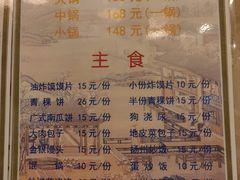 中锅 168 元(一锅)
小锅 148 元
主食
油炸馍馍片 15 元/份 小份炸馍片 10 元/份
青稞饼 26 元/份 半份青稞饼 15 元/份
广式南瓜饼 15 元/份 狗浇尿 15 元/份
大肉包子 15 元/份 地皮菜包子 15 元/份
金银馒头 15 元/份 扬州炒饭 15 元/份
馄饨 10 元/份 蛋炒饭 10 元/份